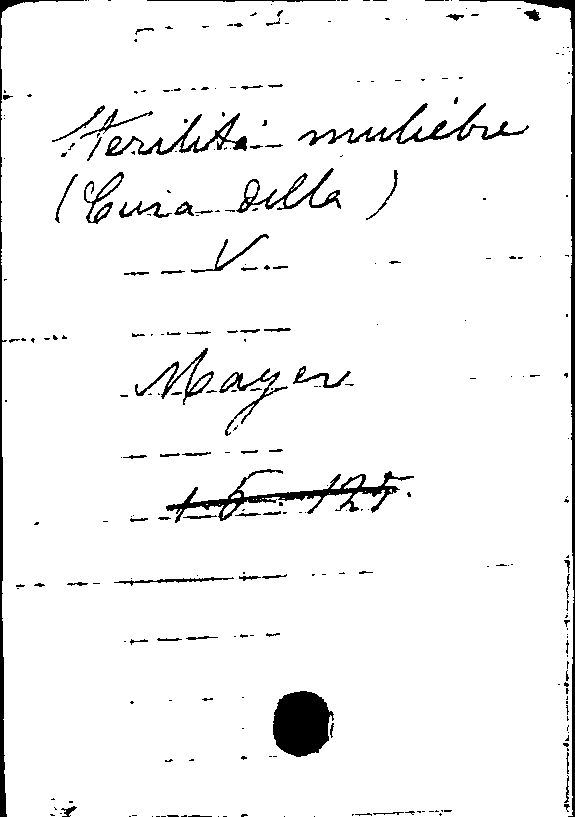 Sterilità muliebre
(Cura della)
V.
Mayer